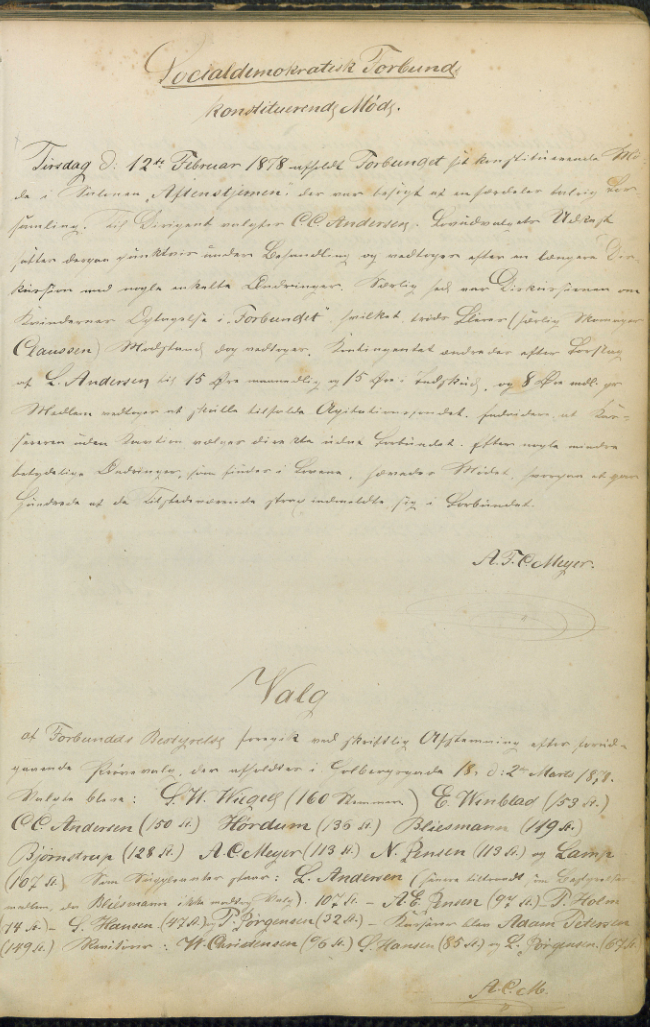 Socialdemokratisk Forbund
konstituerende Møde.
Tirsdag d: 12te Februar 1878 afholdt Forbundet sit konstituerende Mø-
de i Salonen „Aftenstjernen“ der var besøgt af en særdeles talrig For-
samling. Til Dirigent valgtes C.C. Andersen. Lovudvalgets Udkast
sattes derpaa punktvis under Behandling og vedtoges efter en længere Dis-
kussion med nogle enkelte Ændringer. Særlig hed var Diskussionen om
Kvindernes Optagelse i „Forbundet“ hvilket trods Fleres (særlig
Claussen) Modstand dog vedtoges. Kontingentet ændredes efter Forslag
af L. Andersen til 15 Øre maanedlig og 15 Øre i Indskud, og 8 Øre mdl. pr
Medlem vedtoges at skulle tilfalde Agitationsfondet. Endvidere at Kas-
sereren uden Kaution vælges direkte uden Forbundet. Efter nogle mindre
betydelige Ændringer, som findes i Lovene, hævedes Mødet, hvorpaa et par
Hundrede af de Tilstedeværende strax indmeldte sig i Forbundet.
A.F.C. Meyer.
Valg
af Forbundets Bestyrelse foregik ved skriftlig Afstemning efter forud-
gaaende Prøvevalg, der afholdtes i Holbergsgade 18. d: 2den Marts 1878.
Valgte bleve: S.W. Wiegell (160 Stemmer) E. Winblad (153 st.)
C.C. Andersen (150 st.) Hørdum (136 st.) Bliesmann (119 st.)
Bjørndrup (128 st.) A.C. Meyer (113 st.) N. Jensen (113 st.) og Lamp
(107 st.) Som Suppleanter staar: L. Andersen (senere tiltraadt som Bestyrelses-
medlem, da Bliesmann ikke modtog Valg). 107 st. – A.E. Jensen (97 st.) – P. Holm
(74 st. – S. Hansen (47 st.) og P. Jørgensen (32 st.) – Kasserer blev Adam Petersen
(149 st.) Revisorer: W. Christensen (96 st.) S. Hansen (85 st.) og L. Jørgensen (67 st.
A.C.M.